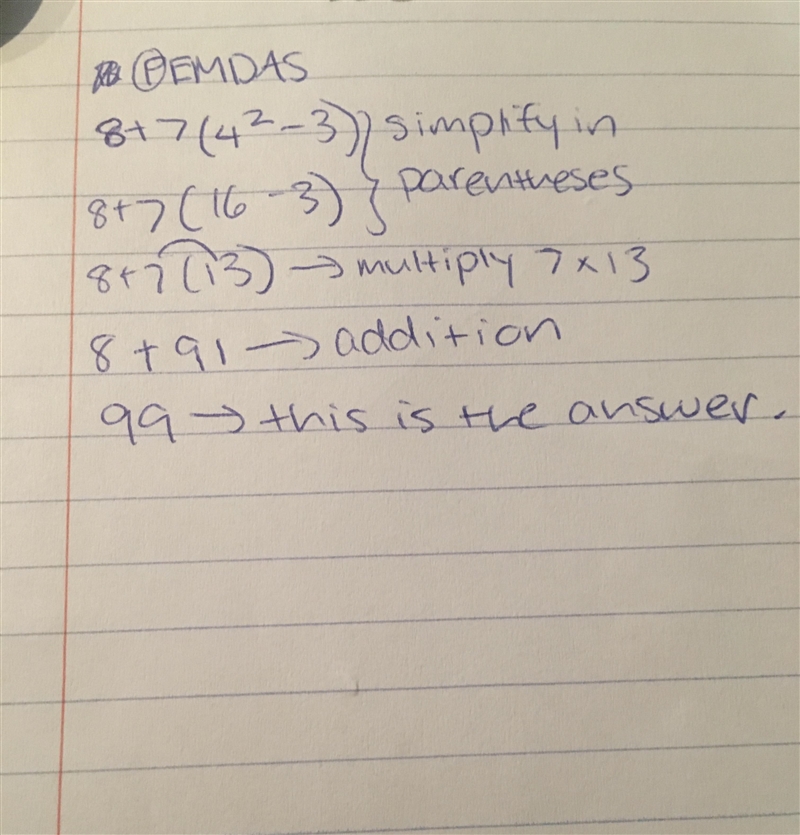 PEMDAS
8+7(4²-3) } simplify in
8+7(16-3) } parentheses
8+7(13) → multiply 7×13
8+91 → addition
99 → this is the answer.